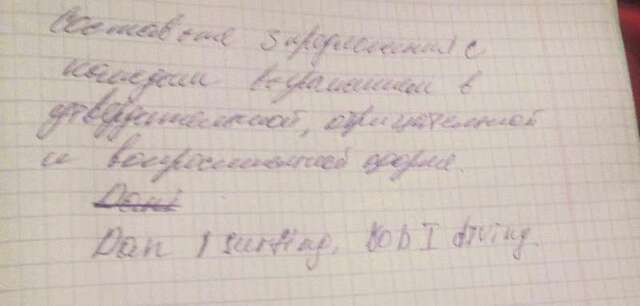 Составьте 3 предложения с
каждым выражением в
утвердительной, отрицательной
и вопросительной форме.
Dan I surfing, BOD I diving.